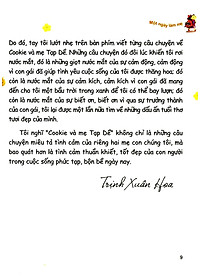 Một ngày làm mẹ
Do đó, tay tôi lướt nhẹ trên bàn phím viết từng câu chuyện về
Cookie và mẹ Tạp Dề. Những câu chuyện đó đôi lúc khiến tôi rơi
nước mắt, đó là những giọt nước mắt của sự cảm động, cảm động
vì con gái đã giúp tình yêu cuộc sống của tôi được thăng hoa; đó
còn là nước mắt của sự cảm kích, vì cảm kích con gái đã mang
đến cho tôi một bầu trời trong xanh để tôi có thể tự do bay lượn; đó
còn là nước mắt của sự biết ơn, biết ơn vì qua sự trưởng thành
của con gái, tôi lại được một lần nữa tìm về những dấu ấn tuổi thơ
tươi đẹp của mình.
Tôi nghĩ "Cookie và mẹ Tạp Dề" không chỉ là những câu
chuyện miêu tả tình cảm của riêng hai mẹ con chúng tôi, mà
bao quát hơn là tình cảm thuần khiết, tốt đẹp của con người
trong cuộc sống phức tạp, bộn bề ngày nay.
Trịnh Xuân Hoa
9